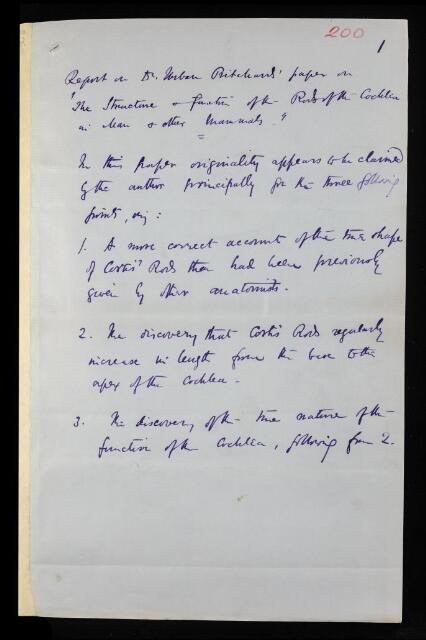 200
1
Report on Dr. Urban Pritchard's paper on
"The Structure & function of the Rods of the Cochlea
in Man & other Mammals."
In this paper originality appears to be claimed
by the author principally for the three following
points, viz:
1. A more correct account of the true shape
of Corti's Rods than had been previously
given by other anatomists.
2. The discovery that Corti's Rods regularly
increase in length from the base to the
apex of the Cochlea.
3. The discovery of the true nature of the
function of the Cochlea, following from 2.